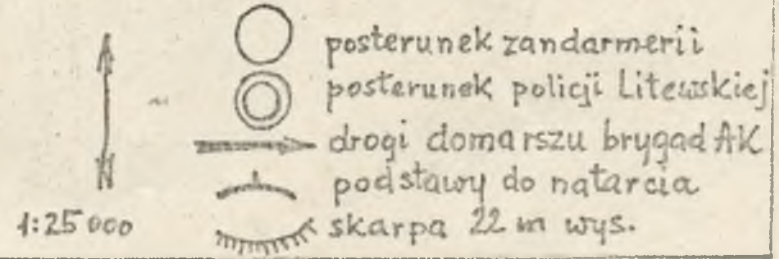 posterunek żandarmerii
posterunek policji Litewskiej
drogi domarszu brygad AK
podstawy do natarcia
skarpa 22 m wys.
N
1:25 000